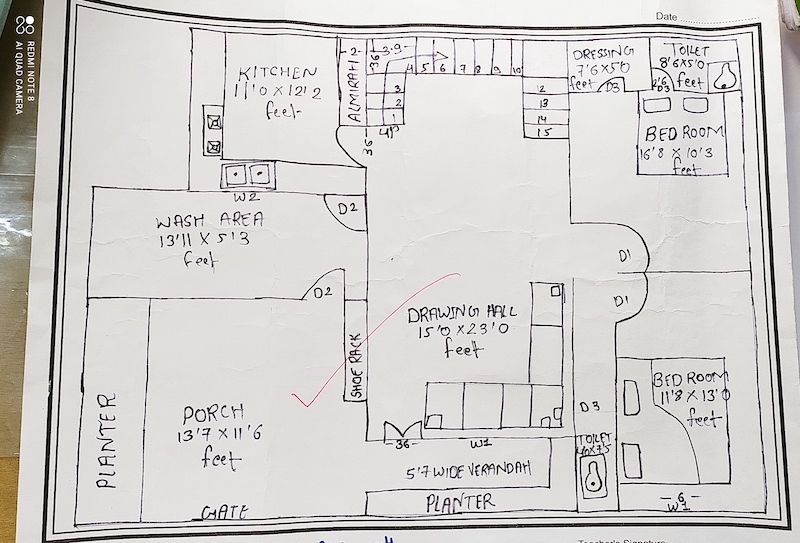 Date
REDMI NOTE 8
AI QUAD CAMERA
KITCHEN
11'0 X 12'2
feet
ALMIRAH
2
3.9
36
4
5
6
7
8
9
10
3
2
1
UP
36
12
13
14
15
DRESSING
7'6X5'0
feet
D3
TOILET
8'6X5'0
feet
2'6
D3
BED ROOM
16'8 X 10'3
feet
W2
WASH AREA
13'11 X 5'3
feet
D2
D2
D1
D1
DRAWING HALL
15'0 X 23'0
feet
SHOE RACK
PLANTER
PORCH
13'7 X 11'6
feet
GATE
36
W1
5'7 WIDE VERANDAH
PLANTER
D3
TOILET
BED ROOM
11'8 X 13'0
feet
6
W1
Teacher's Signature